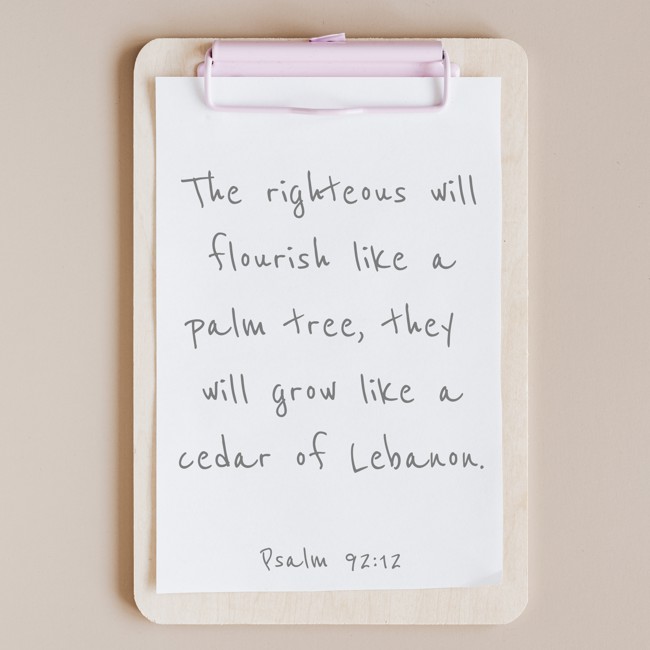 The righteous will
flourish like a
palm tree, they
will grow like a
cedar of Lebanon.
Psalm 92:12